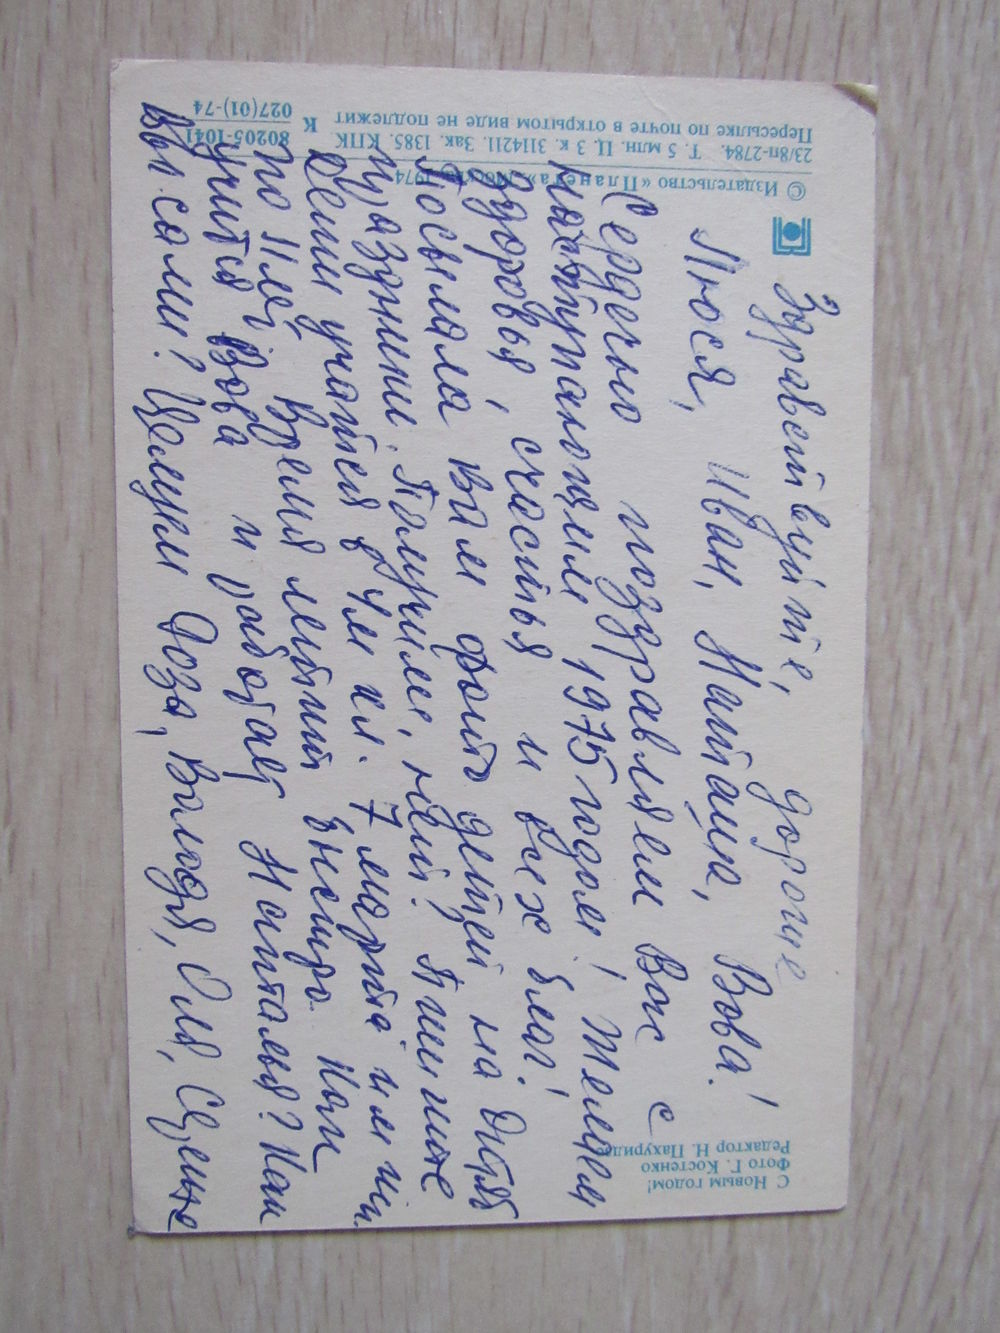 Здравствуйте, дорогие
Люся, Иван, Наташа, Вова!
Сердечно поздравляем Вас с
наступающим 1975 годом! Желаем
здоровья, счастья и всех благ!
Посылала Вам фото детей на октяб
праздники. Получили, нет? Пишите
Дети учатся в 4м кл. 7 марта им ис.
по 11 лет. Время летит быстро. Как
учится Вова и работает Наталья? Как
Вы сами? Целуем Роза, Володя, Оля, Сережа
С Новым годом!
Фото Г. Костенко
Редактор Н. Пахуридзе
© Издательство «Планета». Москва. 1974
23/8п-2784. Т. 5 млн. Ц. 3 к. З114211. Зак. 1385. КПК
Пересылке по почте в открытом виде не подлежит
К 80205-1041
027(01)-74